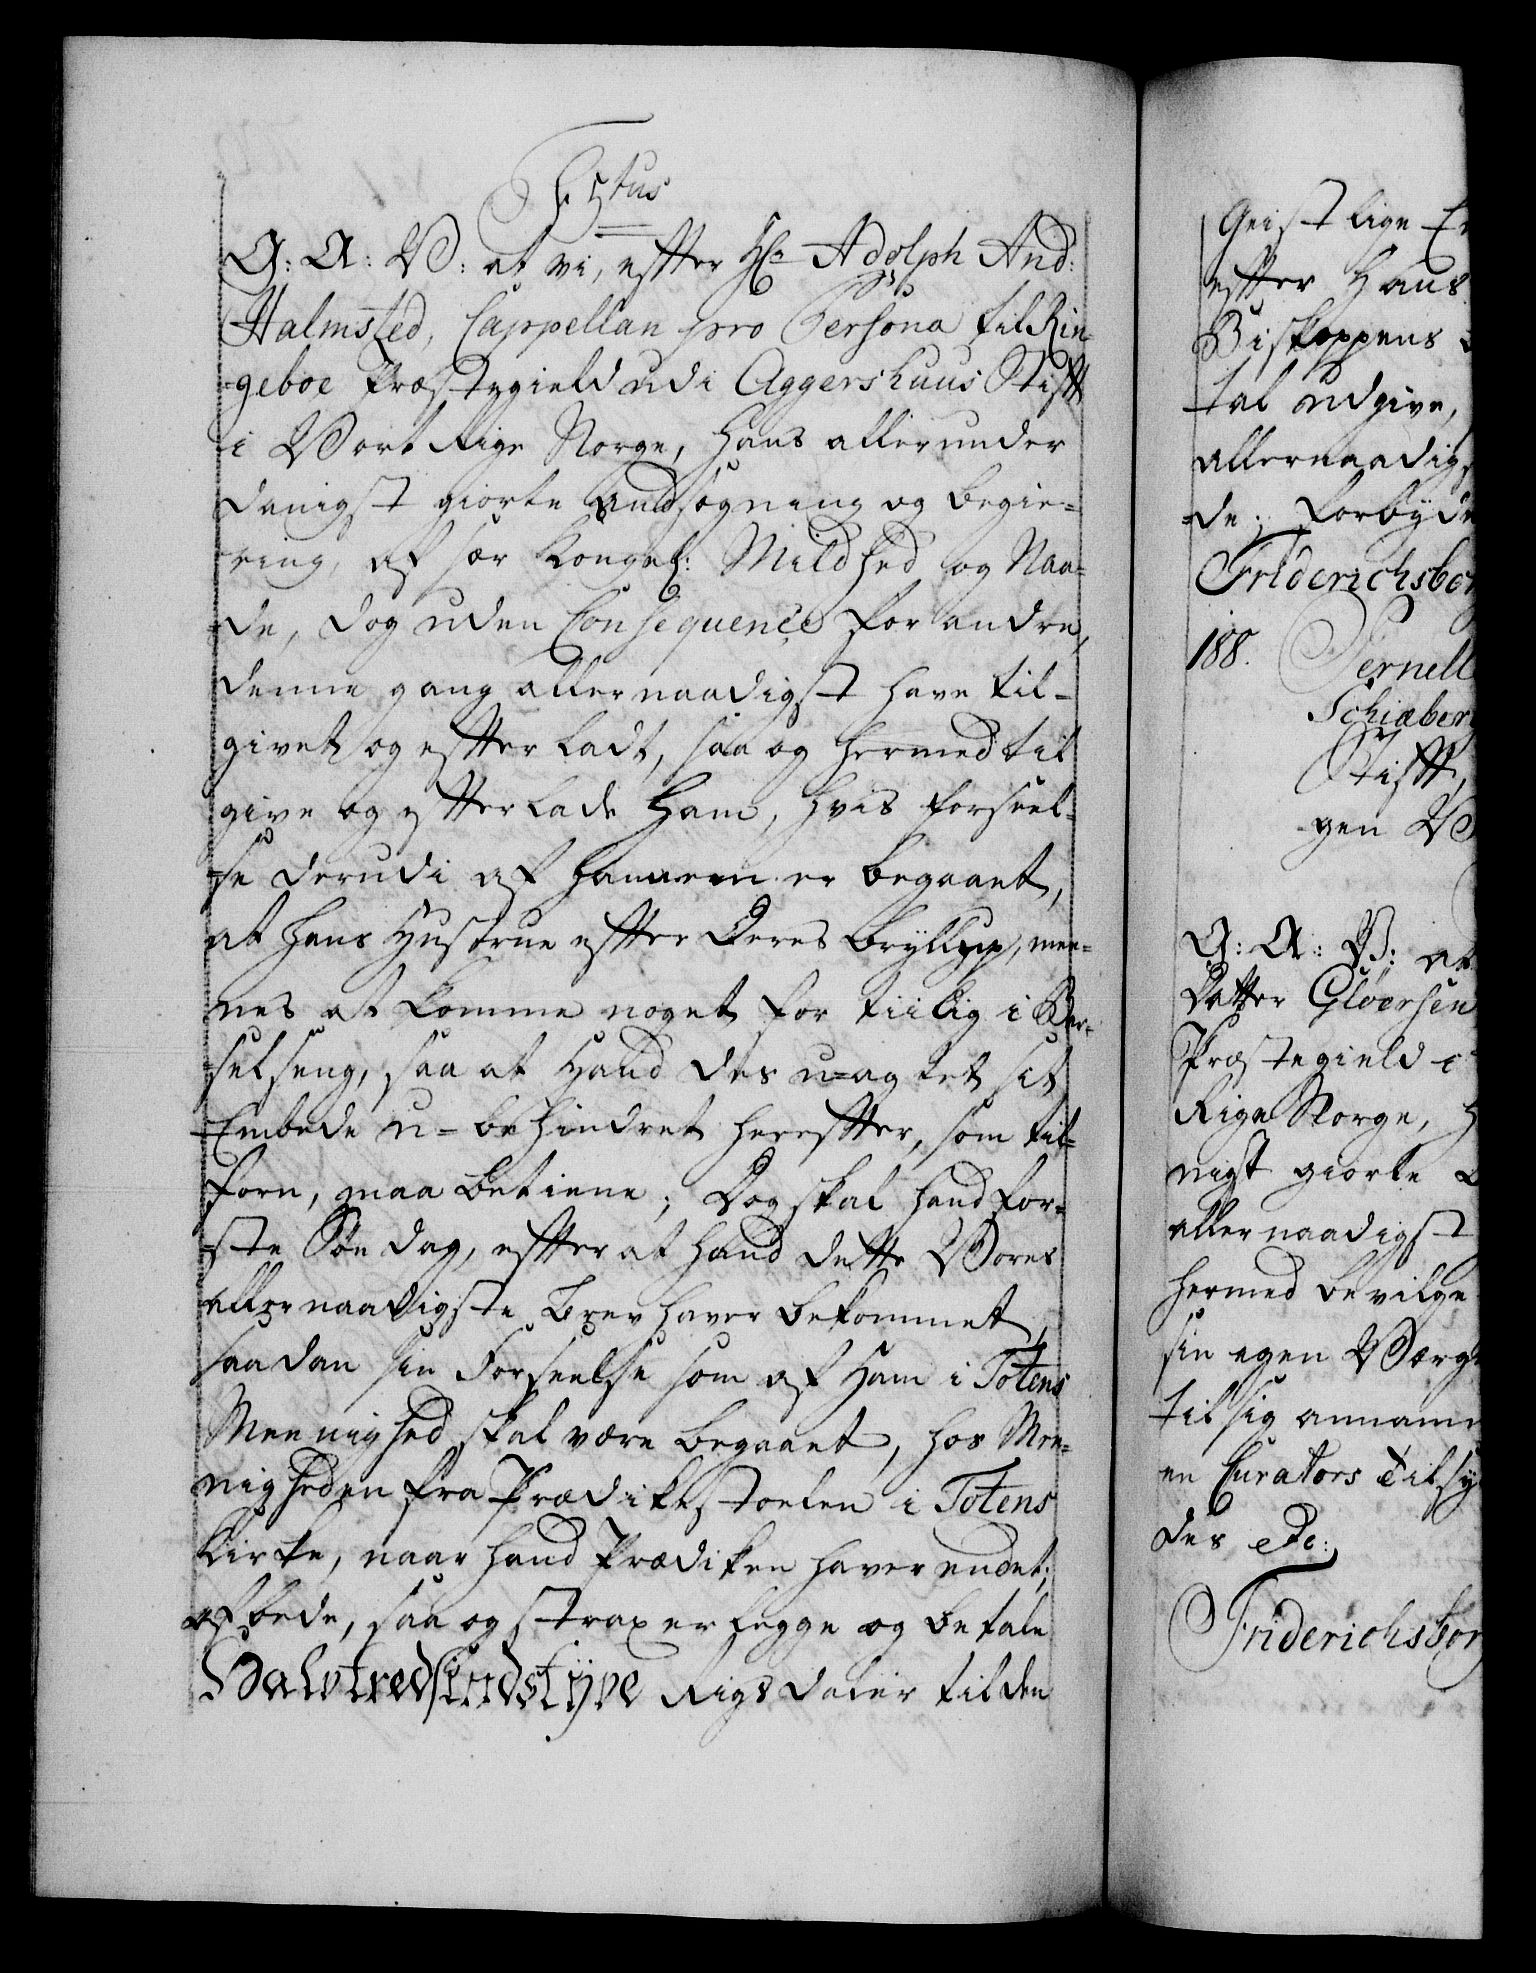 C5tus
G: A: V: at vi, effter Hr. Adolph And:
Halmsted, Cappellan pro Persona til Rin-
-geboe Præstegield udi Aggershuus Stifft
i Vort Rige Norge, hans allerunder
danigst giorte Andsøgning og begie-
ring, af sær Kongel: Mildhed og Naa-
-de, dog uden Consequence for andre,
denne gang allernaadigst have til-
givet og effterladt, saa og hermed til
give og effterlade ham, hvis forseel-
-se derudi af hannem er begaaet,
at hans Hustrue effter deres bryllup, mee-
nes at komme noget for tiilig i Bar-
selseng, saa at hand des u-agtet sit
Embede u-behindret hereffter, som til-
forn, maa betiene; Dog skal hand før-
-ste Søndag, effter at hand dette Vores
allernaadigste brev haver bekommet,
saadan sin Forseelse som af ham i Totens
Meenighed skal være begaaet, hos Mee-
nigheden fra Prædikestoelen i Totens
Kirke, naar hand Prædiken haver endet;
afbede, saa og strax erlegge og betale
Halvtredsindstÿve Rigsdaler til den
Geistlige
effter hans
Biskoppens
tal udgive,
allernaadigst
-de; forbyde
Friderichsborg
188. Pernell
Schiæberg
Stifft,
gen V
G: A: V: at
datter Gloersen
Præstegield i
Rige Norge, h
nigst giorte
allernaadigst
hermed bevilge
sin egen Værge
til sig annam
en Curators Tilsy
des etc:
Friderichsborg